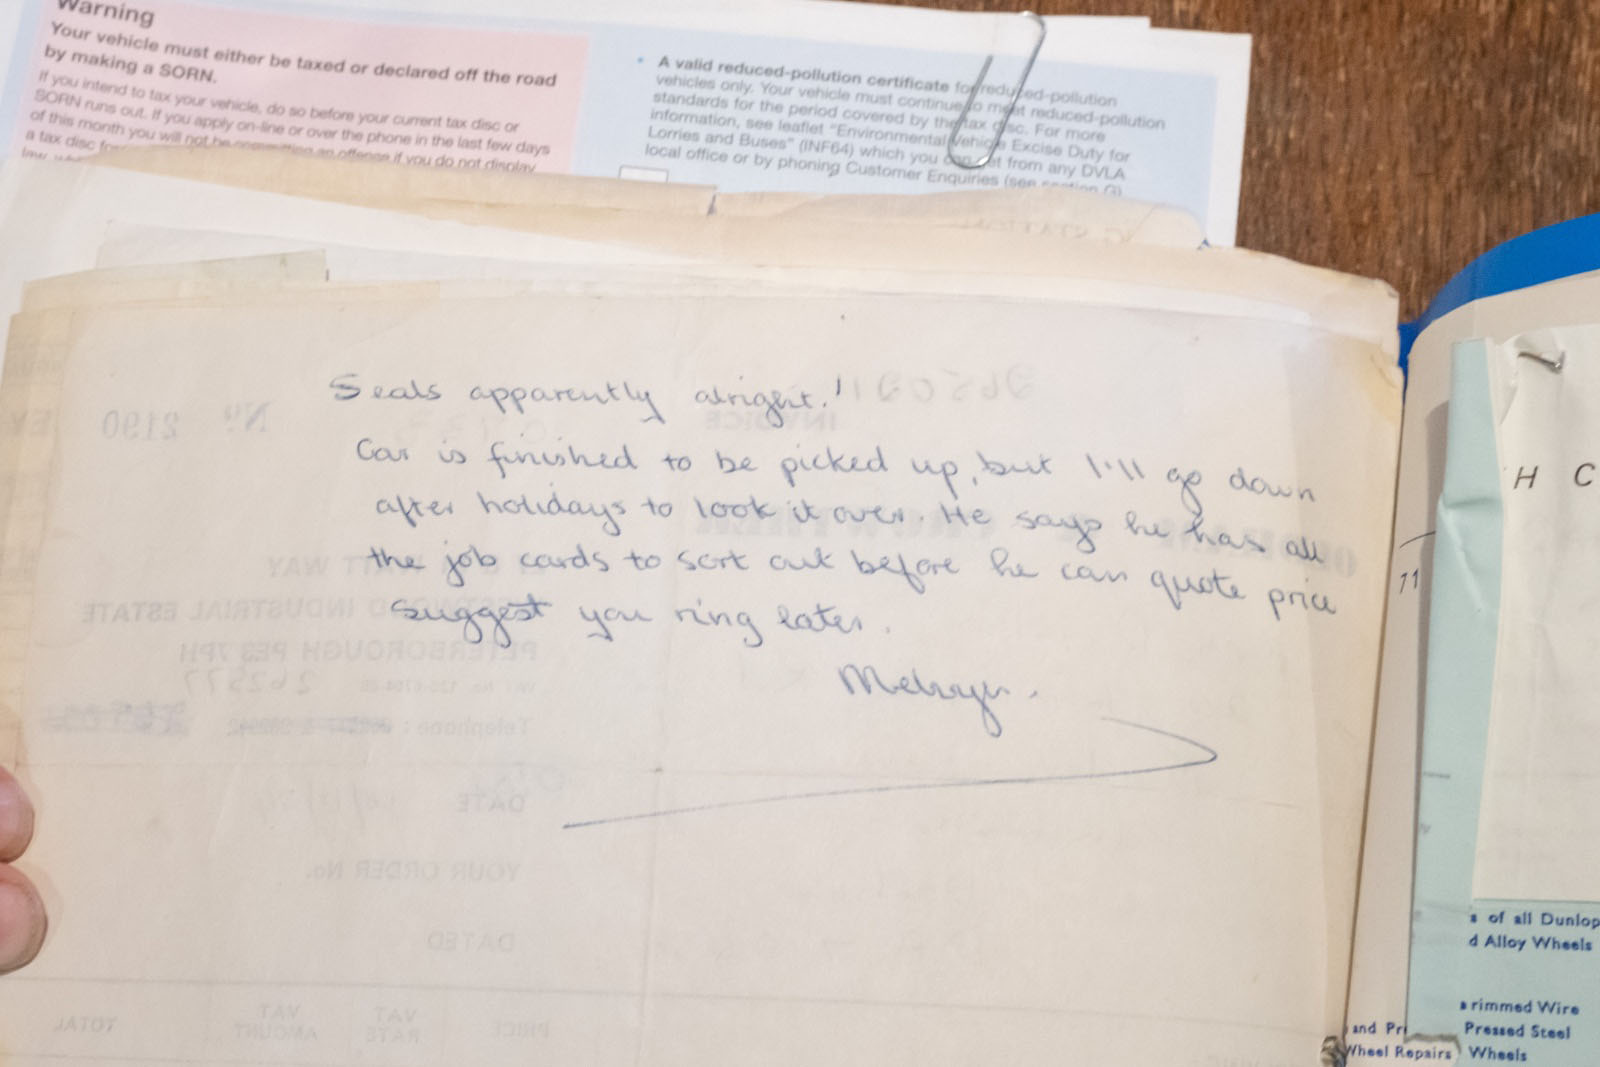 Warning
Your vehicle must either be taxed or declared off the road
by making a SORN.
If you intend to tax your vehicle, do so before your current tax disc or
SORN runs out. If you apply on-line or over the phone in the last few days
of this month you will not be committing an offence if you do not display
a tax disc for
• A valid reduced-pollution certificate for reduced-pollution
vehicles only. Your vehicle must continue to meet reduced-pollution
standards for the period covered by the tax disc. For more
information, see leaflet "Environmental Vehicle Excise Duty for
Lorries and Buses" (INF64) which you can get from any DVLA
local office or by phoning Customer Enquiries (see section G)
Seals apparently alright!
Car is finished to be picked up, but I'll go down
after holidays to look it over. He says he has all
the job cards to sort out before he can quote price
suggest you ring later.
Melvyn.
INVOICE
Nº 2190
WATT WAY
INDUSTRIAL ESTATE
PETERBOROUGH PE3 7PH
262577
Telephone:
DATE
YOUR ORDER No.
DATED
PRICE
VAT RATE
VAT AMOUNT
TOTAL
H C
71
s of all Dunlop
d Alloy Wheels
rimmed Wire
and Pr Pressed Steel
Wheel Repairs Wheels